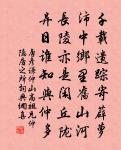 千載遺踪寄薜蘿
沛中鄉里舊山河
長陵亦是閑丘隴
異日誰知與仲多
唐彥謙仲山高祖兄仲
隱居之所詩詞典